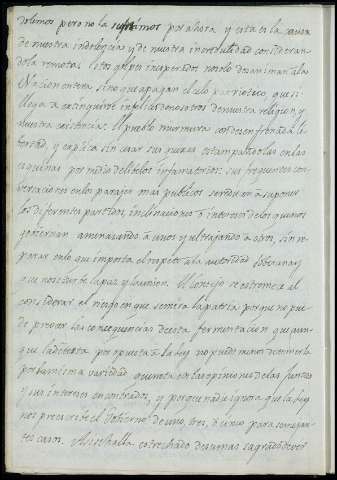 dolemos pero no la sufrimos por ahora y esta es la causa
de nuestra indolencia y de nuestra incredulidad consideran
dola remota. Estos golpes inesperados no solo desaniman a la
Nacion entera sino que apagan el celo patriotico, que si
llega a extinguirse infelices de nosotros de nuestra religion, y
nuestra existencia. El pueblo murmura con desenfrenada li
bertad, y explica sin cesar sus quexas estampandolas en las
esquinas por medio de libelos infamatorios: sus frequentes con
versaciones en los parages mas publicos se reducen a suponer
los diferentes partidos, inclinaciones e intereses de los que nos
gobiernan amenazando a unos y ultrajando a otros, sin re
parar en lo que importa el respeto a la autoridad soberana y
que nos es dar la paz y la union. El consejo se estremece al
considerar el riesgo en que se mira la patria porque no pue
de preveer las consequencias de esta fermentacion que aun
que la detesta por opuesta a la ley no puede menos de temerla
por la misma variedad que nota en las opiniones de las Juntas
y sus intereses encontrados, y porque nadie ignora que la ley
nos prescribe el Gobierno de uno, tres, o cinco para semejan
tes casos. Asi se halla estrechado de sus mas sagrados deber